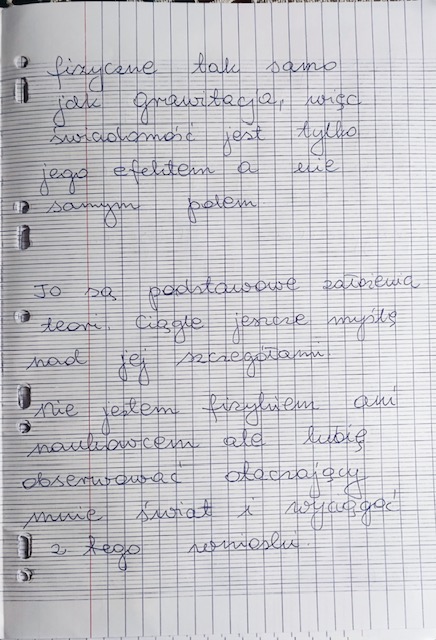 fizyczne tak samo
jak grawitacja, więc
świadomość jest tylko
jego efektem a nie
samym polem
To są podstawowe założenia
teori. Ciągle jeszcze myślę
nad jej szczegółami.
Nie jestem fizykiem ani
naukowcem ale lubię
obserwować otaczający
mnie świat i wyciągać
z tego wnioski.